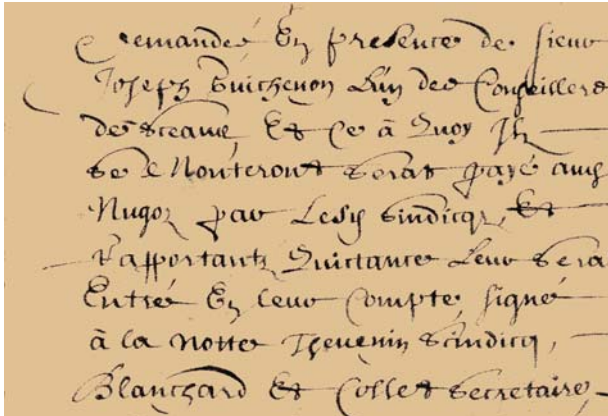 demandés En presence de sieur
Joseph Guichenon L'un des Conseillers
de sceaue, Et Ce à Quoy Ilz
se Monteront serat payé aud
Nugoz par Lesd sindicqz, Et
Rapportantz Quictance Leur sera
Entré En leur Compte, signé
à la notte Thevenin scindicq,
Blanchard Et Collet secretaire,